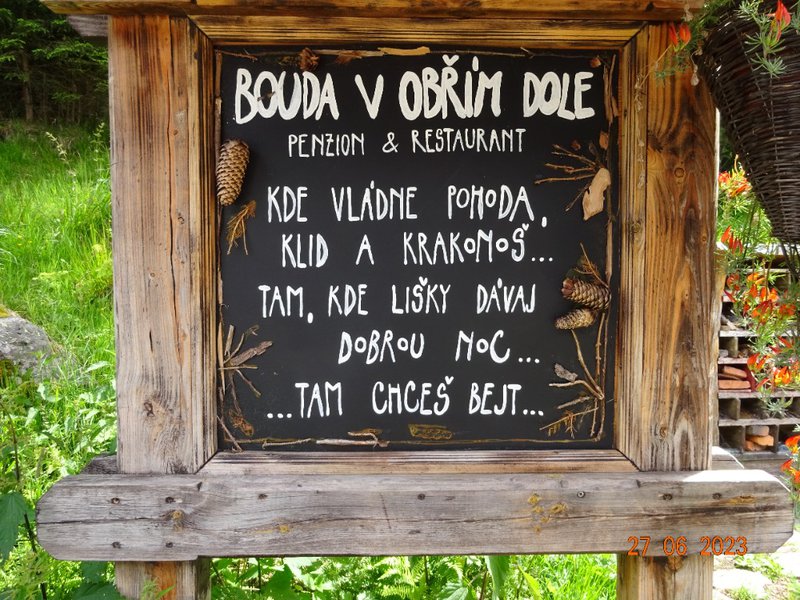 BOUDA V OBŘÍM DOLE
PENZION & RESTAURANT
KDE VLÁDNE POHODA,
KLID A KRAKONOŠ...
TAM, KDE LIŠKY DÁVAJ
DOBROU NOC...
...TAM CHCEŠ BEJT...
27 06 2023